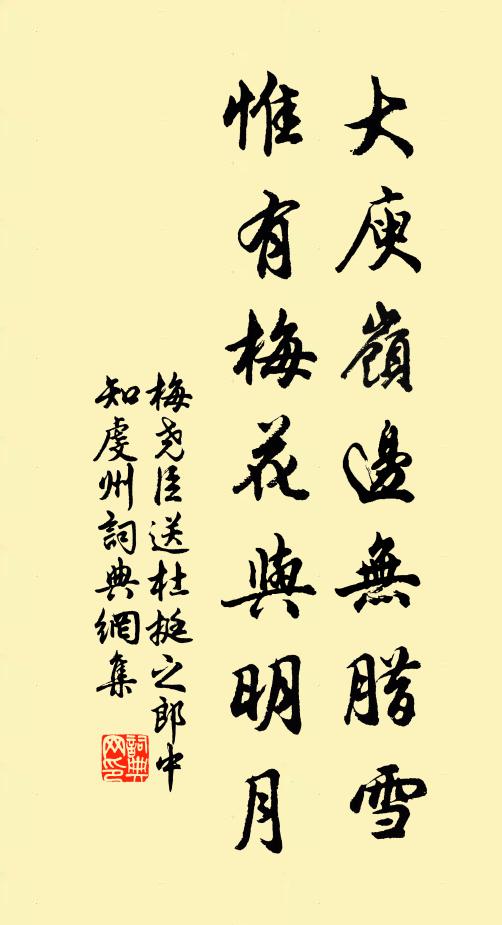 大庾嶺邊無腊雪
惟有梅花與明月
梅堯臣送杜挺之郎中
知虔州詞典網集
詞典
网印